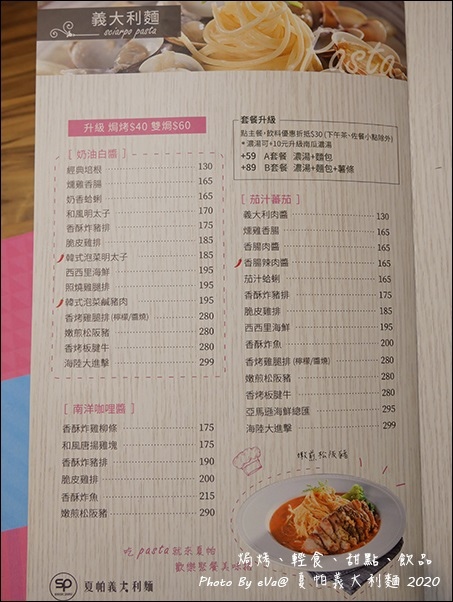 義大利麵
sciarpo pasta
Pasta
升級 焗烤$40 雙焗$60
[ 奶油白醬 ]
經典培根 130
燻雞香腸 165
奶香蛤蜊 165
和風明太子 170
香酥炸豬排 175
脆皮雞排 185
韓式泡菜明太子 185
西西里海鮮 195
照燒雞腿排 195
韓式泡菜鹹豬肉 195
香烤雞腿排 (檸檬/醬燒) 280
嫩煎松阪豬 280
香烤板腱牛 280
海陸大進擊 299
[ 南洋咖哩醬 ]
香酥炸雞柳條 175
和風唐揚雞塊 175
香酥炸豬排 190
脆皮雞排 200
香酥炸魚 215
嫩煎松阪豬 290
吃 pasta 就來夏帕
歡樂聚餐美味
sp
夏帕義大利麵
套餐升級
點主餐，飲料優惠折抵$30 (下午茶、佐餐小點除外)
*濃湯可+10元升級南瓜濃湯
+59 A套餐 濃湯+麵包
+89 B套餐 濃湯+麵包+薯條
[ 茄汁蕃茄 ]
義大利肉醬 130
燻雞香腸 165
香腸肉醬 165
香腸辣肉醬 165
茄汁蛤蜊 165
香酥炸豬排 175
脆皮雞排 185
西西里海鮮 195
香酥炸魚 200
香烤雞腿排 (檸檬/醬燒) 280
嫩煎松阪豬 280
香烤板腱牛 280
亞馬遜海鮮總匯 295
海陸大進擊 299
嫩煎松阪豬
焗烤、輕食、甜點、飲品
Photo By eVa@ 夏帕義大利麵 2020